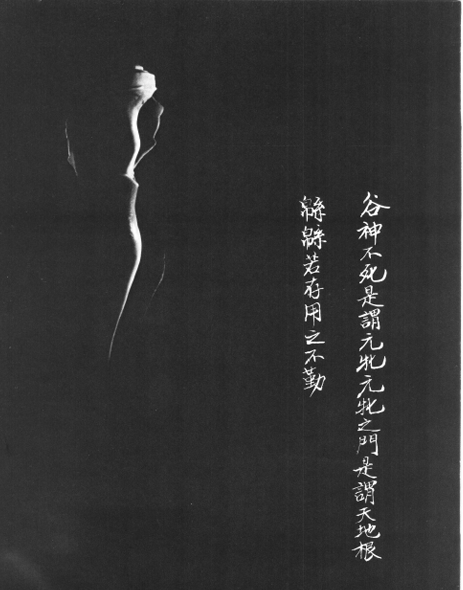 谷神不死是謂元牝元牝之門是謂天地根
緜緜若存用之不勤